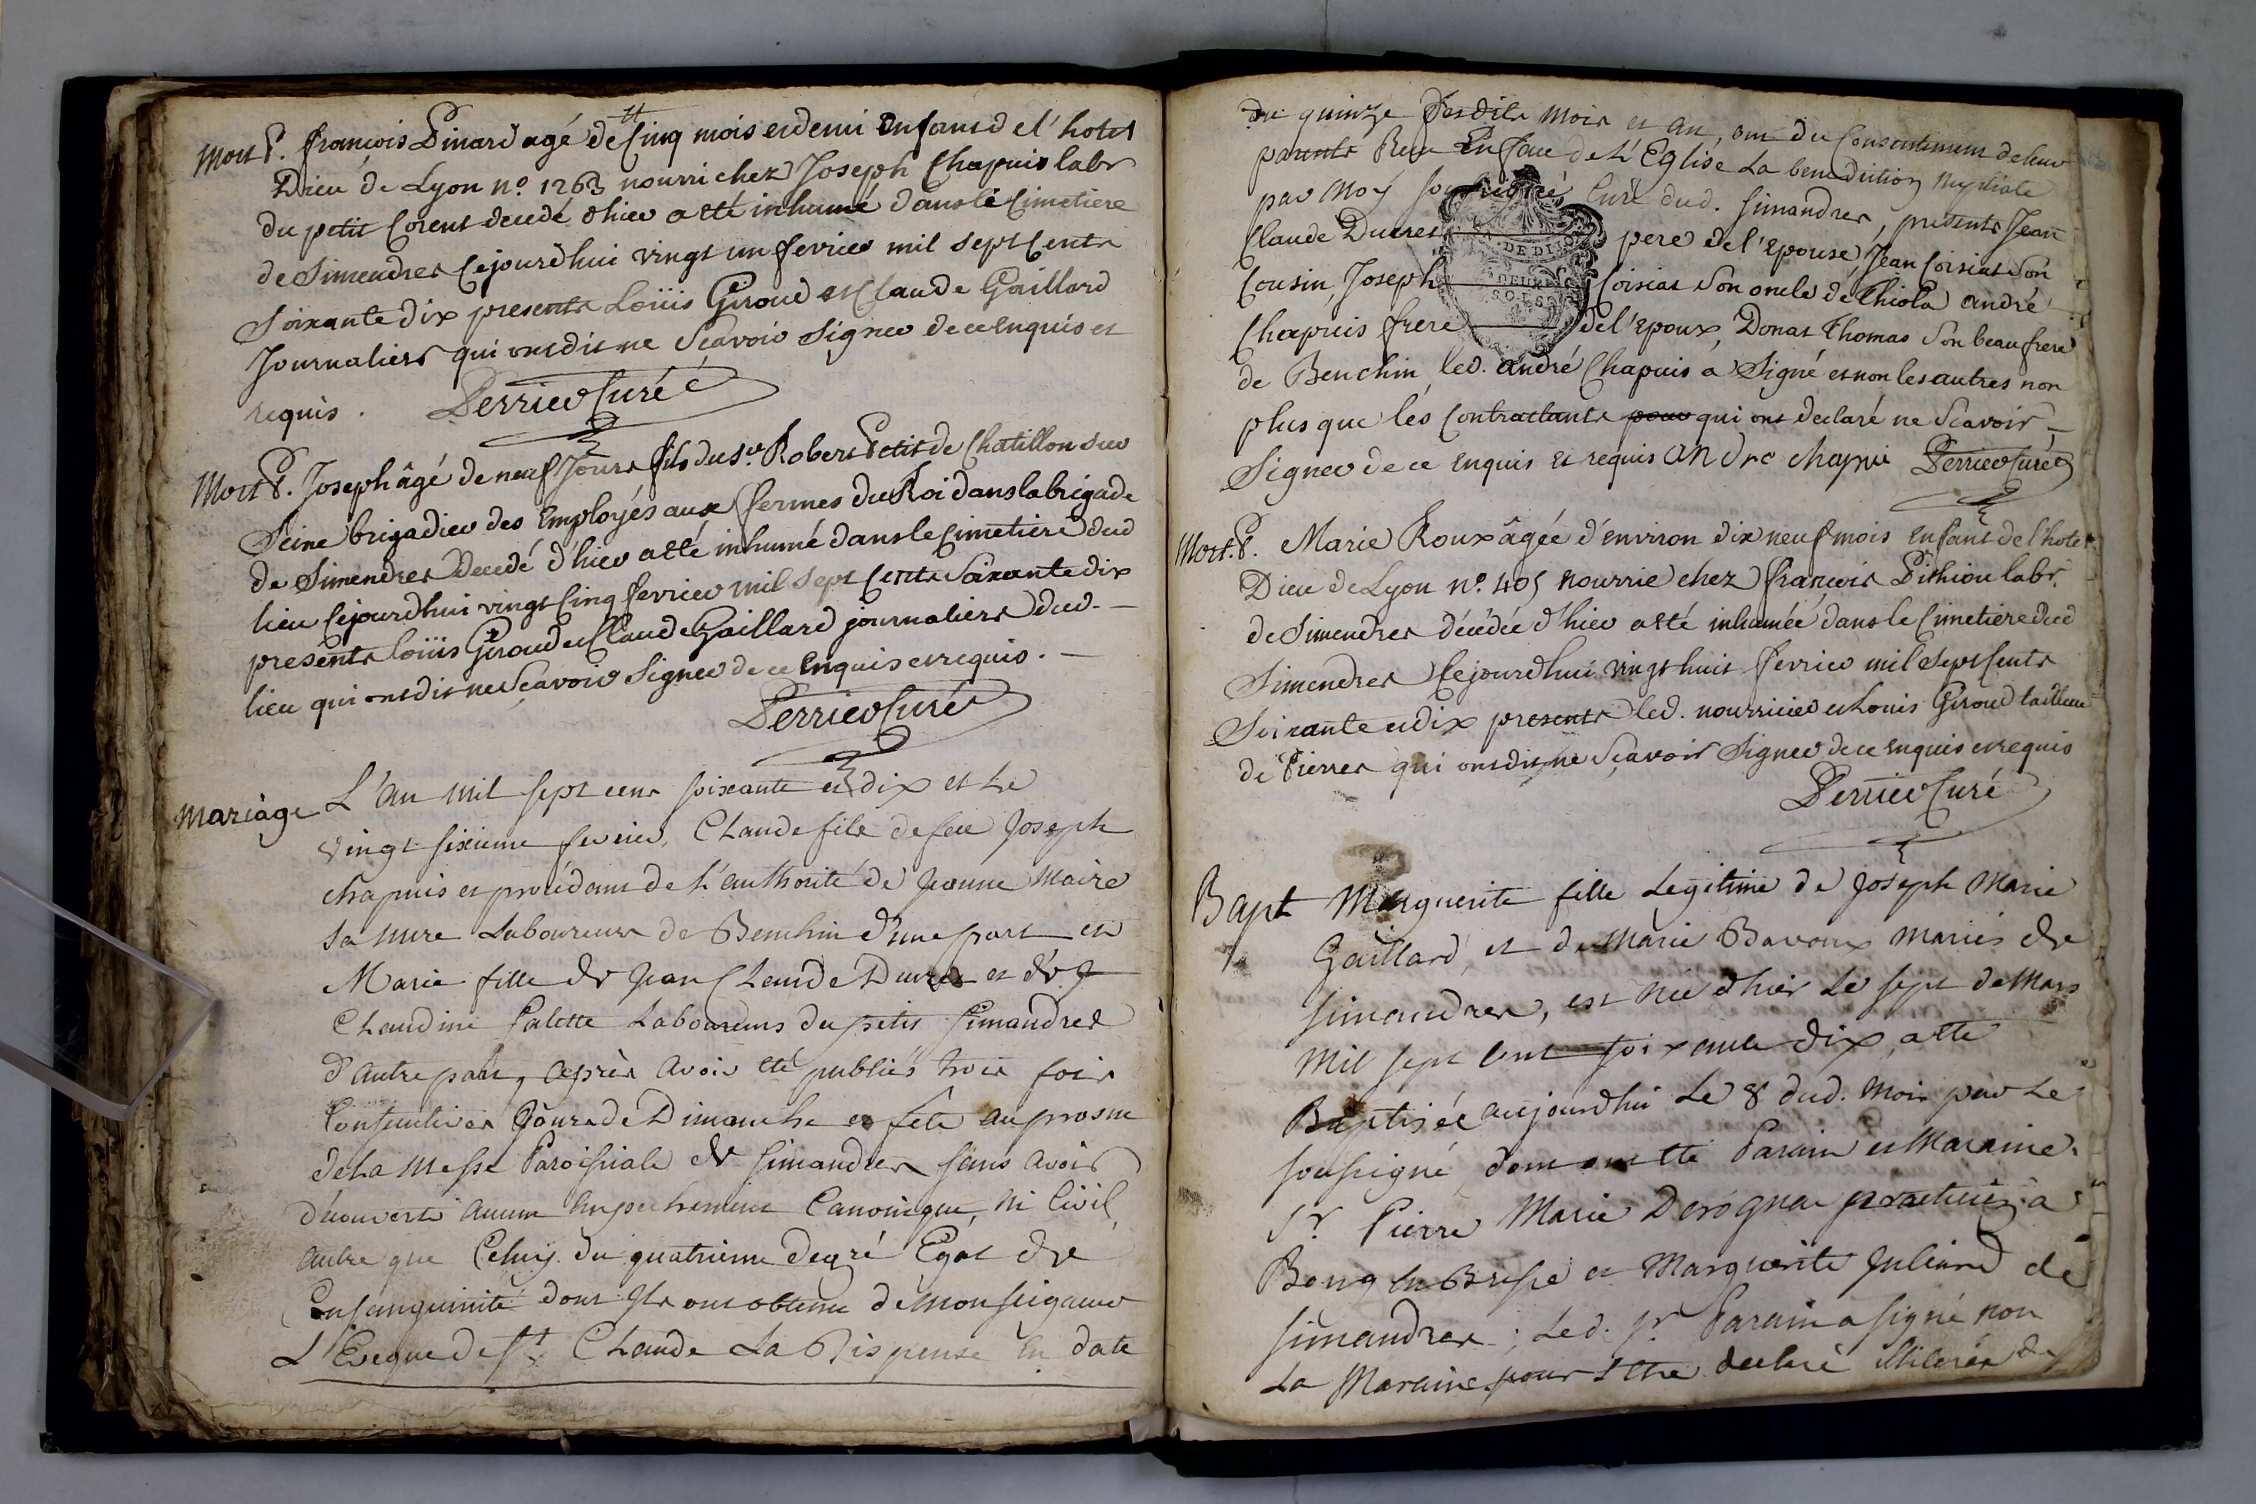 Mort P. françois Pinard agé de Cinq mois et demi Enfant de l'hotel
Dieu de Lyon n.º 1263 nourri chez Joseph Chapuis labr
du petit Corent decedé d'hier a eté inhumé dans le Cimetiere
de Simendres Cejourd'hui vingt un fevrier mil sept Cents
Soixante dix presents Loüis Giroud et Claude Gaillard
Journaliers qui ont dit ne Scavoir Signer de ce Enquis et
requis. Perrier Curé
Mort P. Joseph âgé de neuf Jours fils du Sr. Robert Petit de Chatillon sur
Seine brigadier des Employés aux fermes du Roi dans la brigade
de Simendres Decedé d'hier a eté inhumé dans le Cimetiere dud
lieu Cejourd'hui vingt Cinq fevrier mil Sept Cents Soixante dix
presents loüis Giroud et Claude Gaillard journaliers dud.
lieu qui ont dit ne Scavoir Signer de ce Enquis et requis.
Perrier Curé
Mariage L'an mil sept cent soixante et dix et Le
vingt sixieme fevrier, Claude fils de feu Joseph
chapuis et procédant de L'authorité de Jeanne Maire
sa mere Laboureurs de Benchin d'une part et
Marie fille de Jean Claude Ducret et de
Claudine Palette Laboureurs du petit Simandres
d'autre part, après avoir eté publiés trois fois
Consecutives Jours de Dimanche et fete au prosne
de La Messe Paroissiale de Simandres sans avoir
découvert aucun Empechement Canonique, ni Civil,
autre que Celuy du quatrieme degré Egal de
Consanguinité dont Ils ont obtenu de Monseigneur
L'Eveque de St Claude La Dispense En date
du quinze desdits Mois et an, ont du Consentement de leur
parents Reçu En face de L'Eglise La benediction Nuptiale
par Moy soussigné Curé dud. Simandres, presents Jean
Claude Ducret pere de l'Epouse, Jean Coisiat Son
Cousin, Joseph Coisiat Son oncle de Chiola André
Chapuis frere de l'Epoux, Donat Thomas Son beau frere
de Benchin, led. André Chapuis a Signé et non les autres non
plus que les Contractants pour qui ont declaré ne Scavoir
Signer de ce Enquis et requis Andre chapui Perrier Curé
Mort. P. Marie Roux âgée d'environ dix neuf mois Enfant de l'hotel
Dieu de Lyon n.º 405 nourrie chez françois Pithiou labr.
de Simendres décédée d'hier a eté inhumée dans le Cimetiere dud
Simendres Cejourd'hui vingt huit fevrier mil Sept Cents
Soixante et dix presents led. nourricier et Louis Giroud tailleur
de Pierres qui ont dit ne Scavoir Signer de ce enquis et requis
Perrier Curé
Bapt Marguerite fille Legitime de Joseph Marie
Gaillard, et de Marie Bavoux Mariés de
Simandres, est née d'hier Le sept de Mars
Mil sept Cent soixante dix, a eté
Baptisée aujourd'hui Le 8 dud. Mois par Le
soussigné, dont ont eté Parain et Maraine.
Sr. Pierre Marie Derognat praticien a
Bourg En Bresse et Marguerite Juliard de
Simandres; Led. Sr. Parain a signé non
La Maraine pour s'etre declaré illiterée de